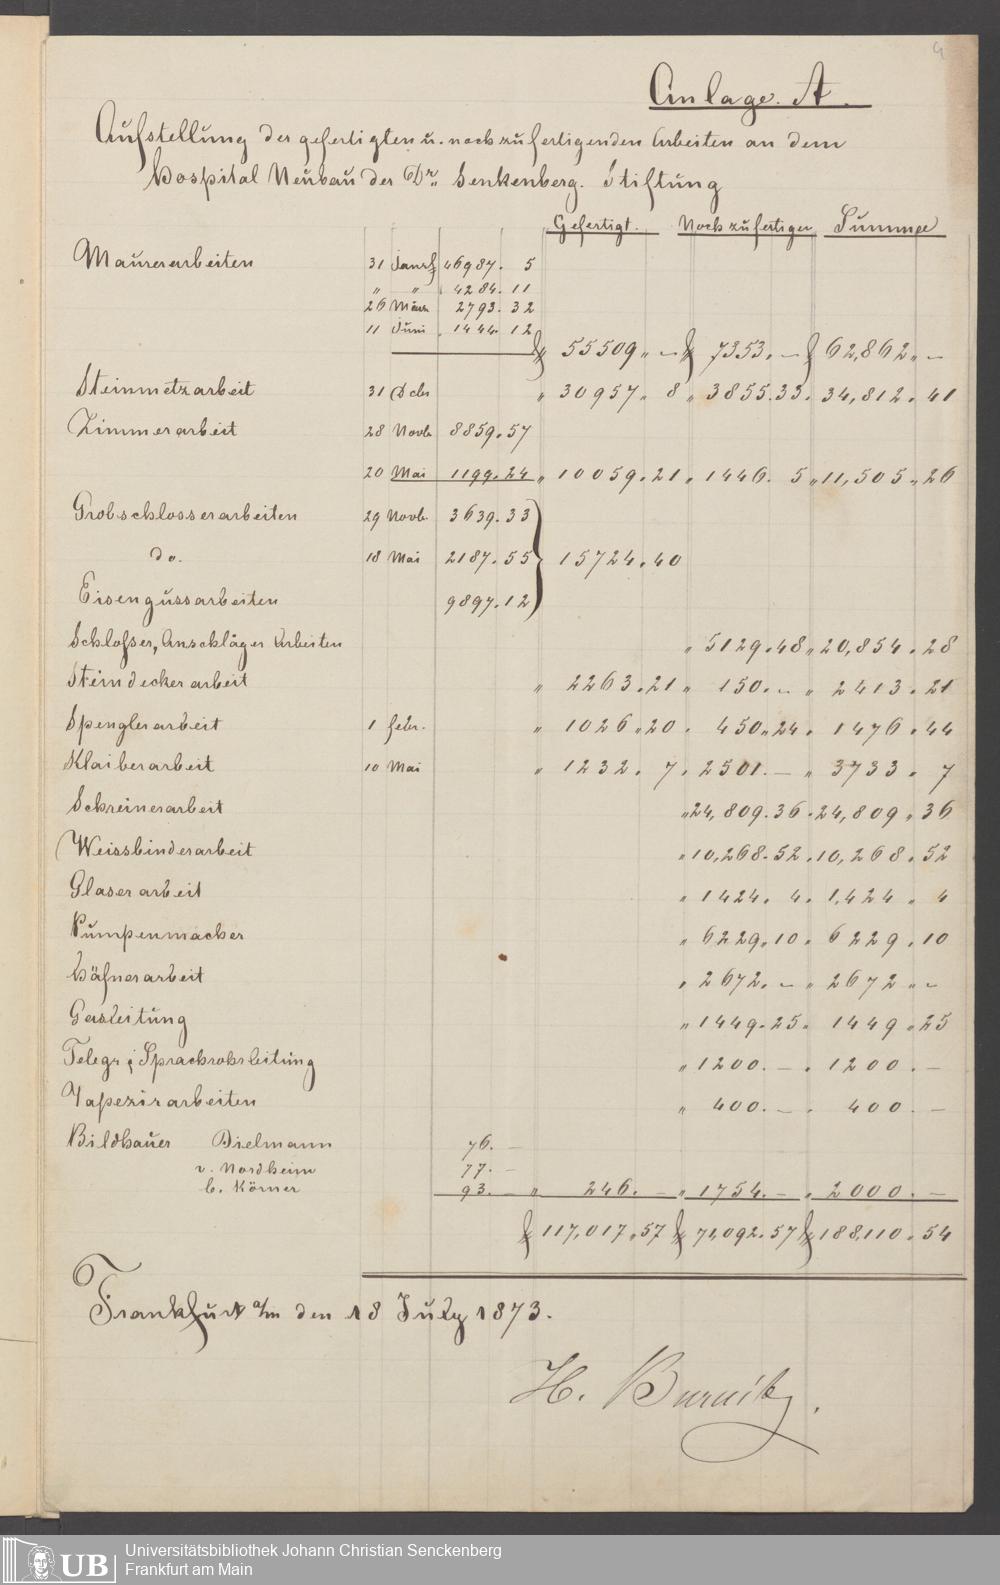 4
Anlage. A.
Aufstellung der gefertigten u. noch zu fertigenden Arbeiten an dem
Hospital Neubau der Dr. Senkenberg. Stiftung
Gefertigt. Noch zu fertigen Summe
Maurerarbeiten 31 Janr. f 46987. 5
" " 4284. 11
26 März 2793. 32
11 Juni 1444. 12
f 55509 " – f 7353. – f 62,862 " –
Steinmetzarbeit 31 Dcbr " 30957 " 8 " 3855. 33. 34,812. 41
Zimmerarbeit 28 Novb. 8859. 57
20 Mai 1199. 24 " 10059. 21 " 1446. 5 " 11,505 " 26
Grobschlosserarbeiten 29 Novb. 3639. 33
do. 18 Mai 2187. 55 } 15724. 40
Eisengussarbeiten 9897. 12
Schlosser, Anschläger Arbeiten " 5129. 48 " 20,854. 28
Steindeckerarbeit " 2263. 21 " 150. – " 2413. 21
Spenglerarbeit 1 febr. " 1026 " 20. 450 " 24. 1476. 44
Klaiberarbeit 10 Mai " 1232. 7. 2501. – " 3733. 7
Schreinerarbeit " 24,809. 36. 24,809 " 36
Weissbinderarbeit " 10,268. 52. 10,268. 52
Glaserarbeit " 1424. 4. 1,424 " 4
Pumpenmacher " 6229 " 10. 6229. 10
Häfnerarbeit " 2672. – " 2672 " –
Gasleitung " 1449. 25. 1449 " 25
Telegr. & Sprachrohrleitung " 1200. – . 1200. –
Tapezirarbeiten " 400. – . 400. –
Bildhauer Dielmann 76. –
v. Nordheim 77. –
C. Körner 93. – " 246. – " 1754. – . 2000. –
f 117,017 " 57 f 71,092. 57 f 188,110. 54
Frankfurt a/m den 18 July 1873.
H. Burnitz.
UB
Universitätsbibliothek Johann Christian Senckenberg
Frankfurt am Main